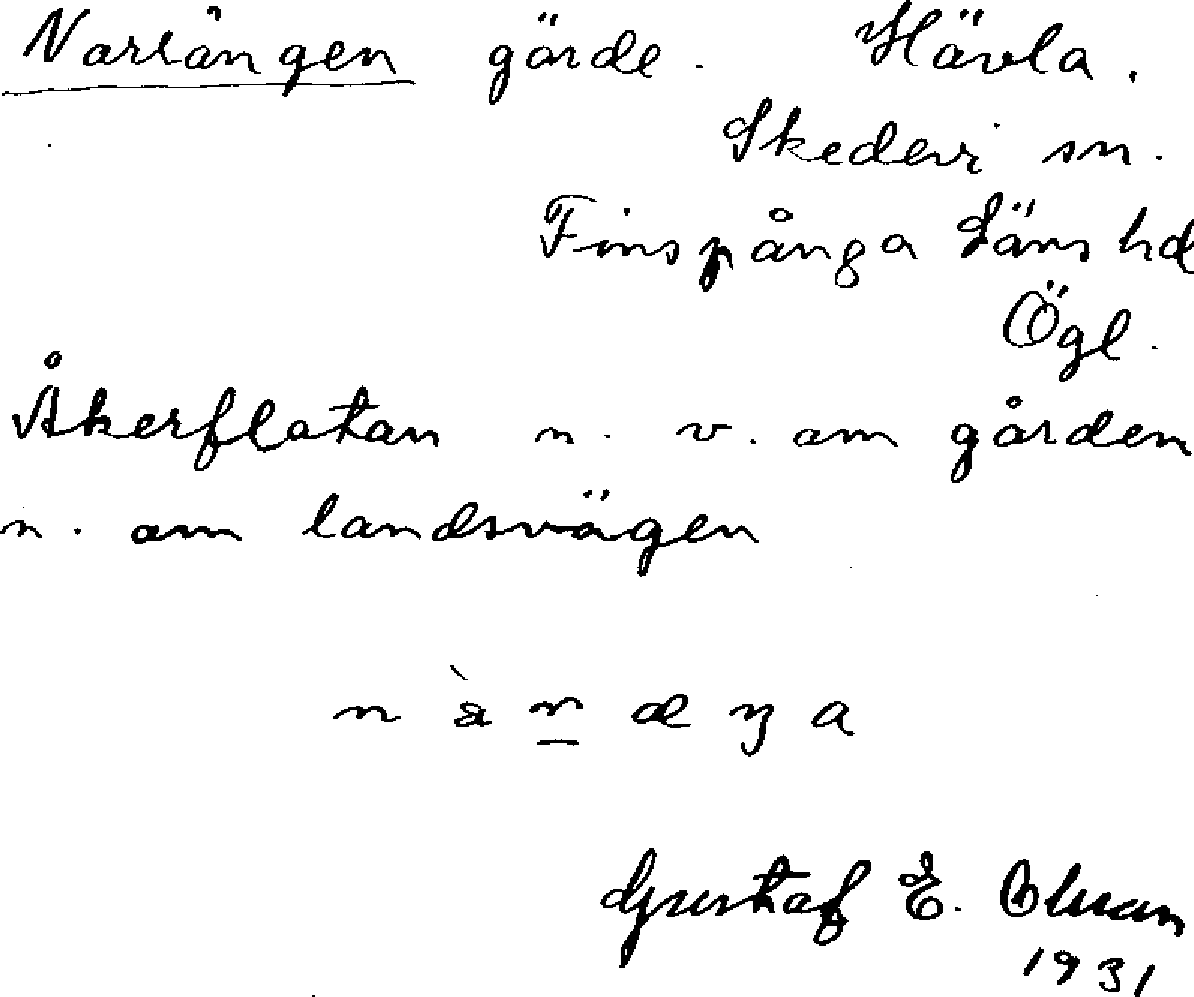 Norrängen gärde. Hävla.
Skedevi sn.
Finspånga Läns hd
Ögl.
Åkerflatan n. v. om gården
n. om landsvägen
Gustaf E. Olsson
1931